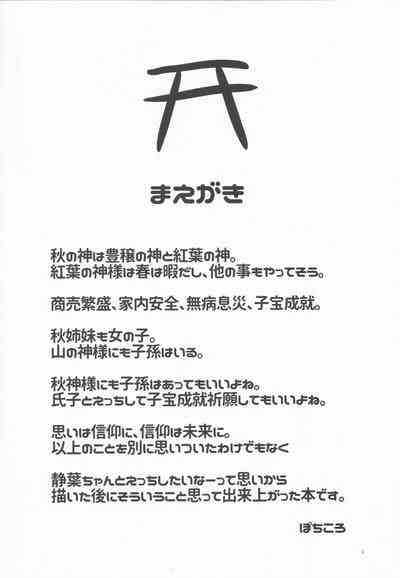 まえがき
秋の神は豊穣の神と紅葉の神。
紅葉の神様は春は暇だし、他の事もやってそう。
商売繁盛、家内安全、無病息災、子宝成就。
秋姉妹も女の子。
山の神様にも子孫はいる。
秋神様にも子孫はあってもいいよね。
氏子とえっちして子宝成就祈願してもいいよね。
思いは信仰に、信仰は未来に。
以上のことを別に思いついたわけでもなく
静葉ちゃんとえっちしたいなーって思いから
描いた後にそういうこと思って出来上がった本です。
ぽちころ